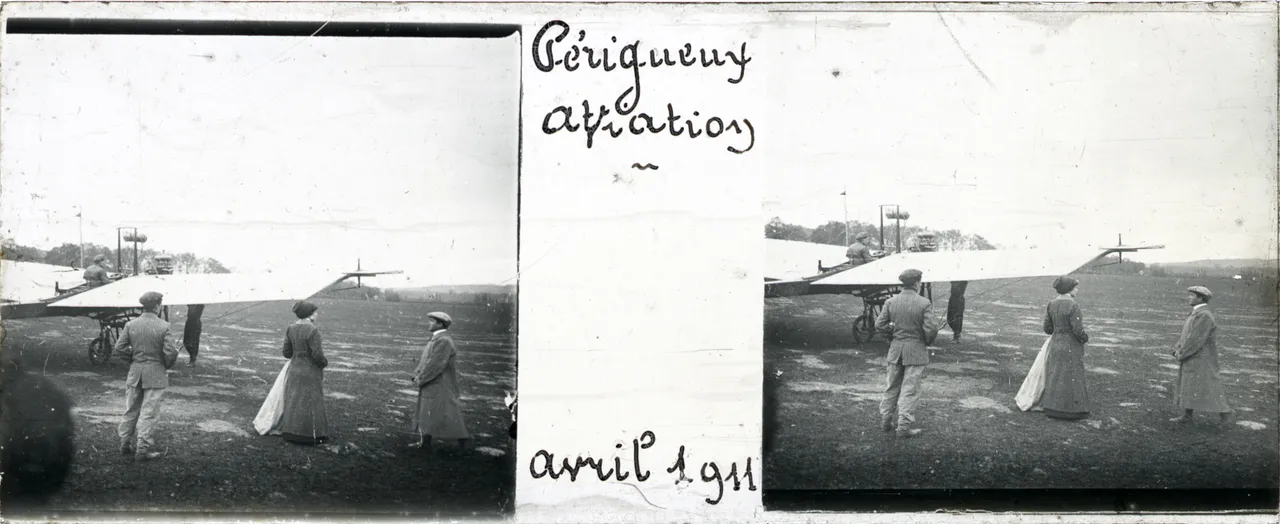 Périgueux
aviation
~
avril 1911